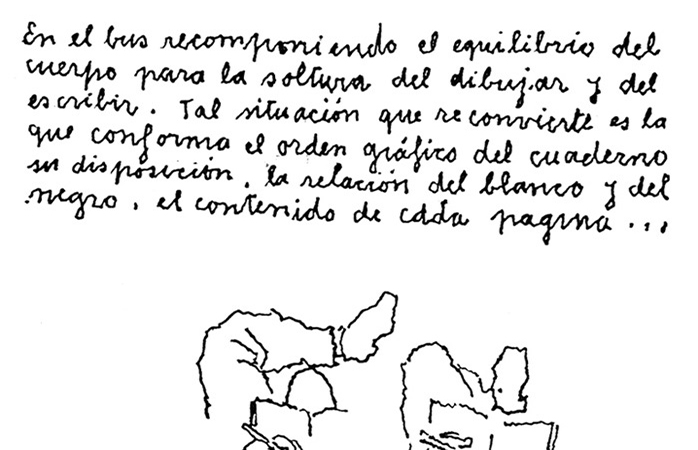 En el bus recomponiendo el equilibrio del
cuerpo para la soltura del dibujar y del
escribir. Tal situación que reconvierte es la
que conforma el orden gráfico del cuaderno
su disposición, la relación del blanco y del
negro, el contenido de cada pagina ...